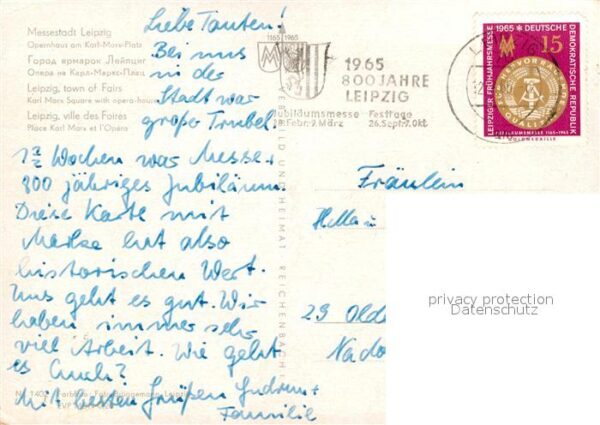 Messestadt Leipzig
Opernhaus am Karl-Marx-Platz
Город ярмарок Лейпциг
Опера на Карл-Маркс-Плац
Leipzig, town of Fairs
Karl Marx Square with opera-house
Leipzig, ville des Foires
Place Karl Marx et l'Opéra
Liebe Tanten!
Bei uns
in der
Stadt war
großer Trubel.
1 1/2 Wochen war Messe +
800 jähriges Jubiläum
Diese Karte mit
Marke hat also
historischen Wert.
Uns geht es gut. Wir
haben immer sehr
viel Arbeit. Wie geht
es Euch?
Mit besten Grüßen Gudrun +
Familie
BILD UND HEIMAT REICHENBACH
1165 1965
1965
800 JAHRE
LEIPZIG
Jubiläumsmesse Festtage
28. Febr.-9. März 26. Sept.-9. Okt.
LEIPZIGER FRÜHJAHRSMESSE
1965 DEUTSCHE
DEMOKRATISCHE REPUBLIK
15
JUBILÄUMSMESSE 1165-1965
GOLDMEDAILLE
Fräulein
Hella
29 Olde
Nado
privacy protection
Datenschutz